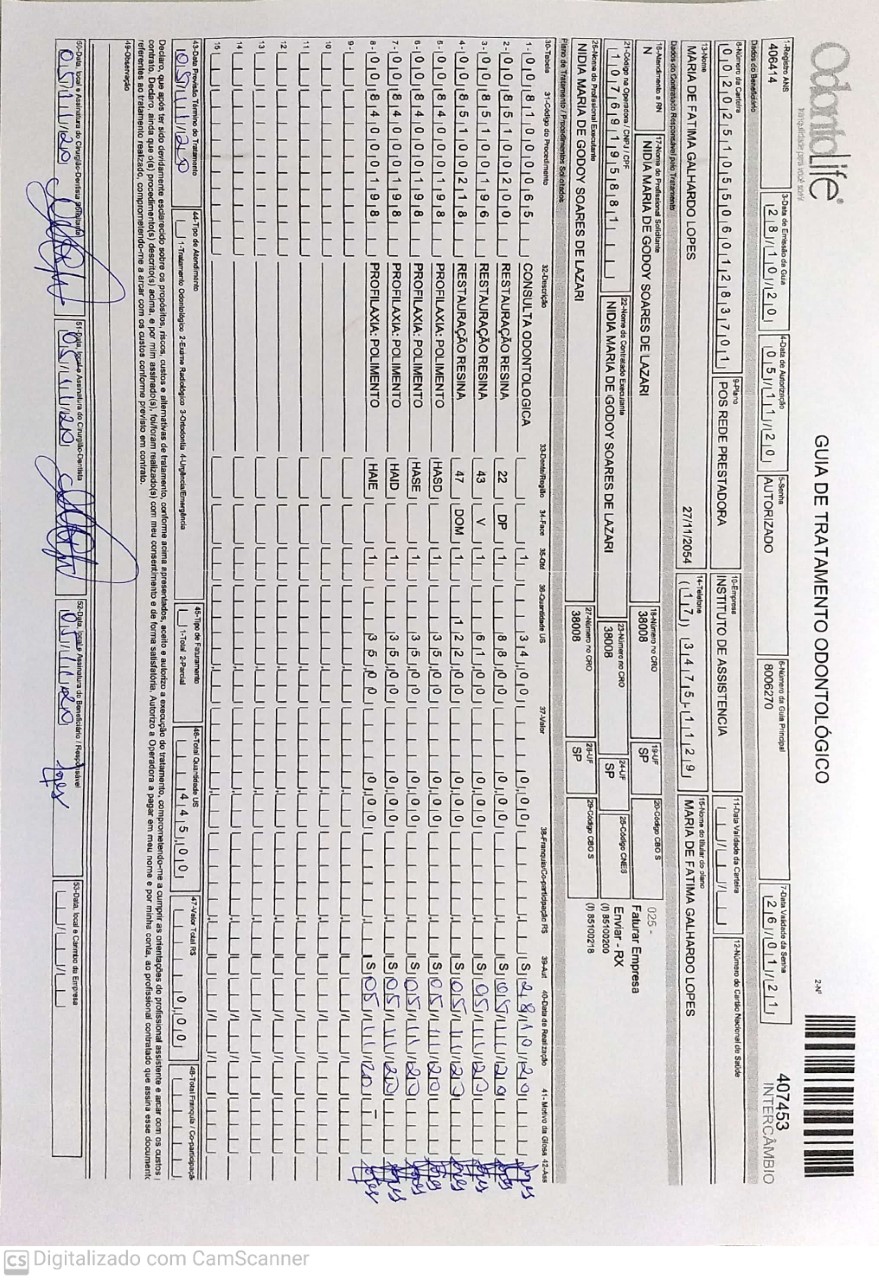 OdontoLife®
tranquilidade para você sorrir
GUIA DE TRATAMENTO ODONTOLÓGICO
2-Nº
407453
INTERCÂMBIO
1-Registro ANS
406414
3-Data de Emissão da Guia
28/10/20
4-Data de Autorização
05/11/20
5-Senha
AUTORIZADO
6-Número da Guia Principal
8006270
7-Data Validade da Senha
26/01/21
Dados do Beneficiário
8-Número da Carteira
00202510550601283701
9-Plano
POS REDE PRESTADORA
10-Empresa
INSTITUTO DE ASSISTENCIA
11-Data Validade da Carteira
12-Número do Cartão Nacional de Saúde
13-Nome
MARIA DE FATIMA GALHARDO LOPES
27/11/2054
14-Telefone
(17) 3475-1129
15-Nome do titular do plano
MARIA DE FATIMA GALHARDO LOPES
Dados do Contratado Responsável pelo Tratamento
16-Atendimento a RN
N
17-Nome do Profissional Solicitante
NIDIA MARIA DE GODOY SOARES DE LAZARI
18-Número no CRO
38008
19-UF
SP
20-Código CBO S
025 -
Faturar Empresa
Enviar - RX
(I) 85100200
(I) 85100218
21-Código na Operadora / CNPJ / CPF
10769195881
22-Nome do Contratado Executante
NIDIA MARIA DE GODOY SOARES DE LAZARI
23-Número no CRO
38008
24-UF
SP
25-Código CNES
26-Nome do Profissional Executante
NIDIA MARIA DE GODOY SOARES DE LAZARI
27-Número no CRO
38008
28-UF
SP
29-Código CBO S
Plano de Tratamento / Procedimentos Solicitados
30-Tabela 31-Código do Procedimento 32-Descrição 33-Dente/Região 34-Face 35-Qtd 36-Quantidade US 37-Valor 38-Franquia/Co-participação R$ 39-Aut 40-Data de Realização 41-Motivo da Glosa 42-Ass
1- 00 81000065 CONSULTA ODONTOLOGICA 1 34,00 0,00 S 28/10/20
2- 00 85100200 RESTAURAÇÃO RESINA 22 DP 1 88,00 0,00 S 05/11/20
3- 00 85100196 RESTAURAÇÃO RESINA 43 V 1 61,00 0,00 S 05/11/20
4- 00 85100218 RESTAURAÇÃO RESINA 47 DOM 1 122,00 0,00 S 05/11/20
5- 00 84000198 PROFILAXIA: POLIMENTO HASD 1 35,00 0,00 S 05/11/20
6- 00 84000198 PROFILAXIA: POLIMENTO HASE 1 35,00 0,00 S 05/11/20
7- 00 84000198 PROFILAXIA: POLIMENTO HAID 1 35,00 0,00 S 05/11/20
8- 00 84000198 PROFILAXIA: POLIMENTO HAIE 1 35,00 0,00 S 05/11/20
9-
10-
11-
12-
13-
14-
15-
43-Data Previsão Término do Tratamento
05/11/20
44-Tipo de Atendimento
1-Tratamento Odontológico 2-Exame Radiológico 3-Ortodontia 4-Urgência/Emergência
45-Tipo de Faturamento
1-Total 2-Parcial
46-Total Quantidade US
445,00
47-Valor Total R$
0,00
48-Total Franquia / Co-participação
Declaro, que após ter sido devidamente esclarecido sobre os propósitos, riscos, custos e alternativas de tratamento, conforme acima apresentados, aceito e autorizo a execução do tratamento, comprometendo-me a cumprir as orientações do profissional assistente e arcar com os custos
contrato. Declaro, ainda que o(s) procedimento(s) descrito(s) acima, e por mim assinado(s), foi/foram realizado(s) com meu consentimento e de forma satisfatória. Autorizo a Operadora a pagar em meu nome e por minha conta, ao profissional contratado que assina esse documento
referentes ao tratamento realizado, comprometendo-me a arcar com os custos conforme previsto em contrato.
49-Observação
50-Data, local e Assinatura do Cirurgião-Dentista
05/11/20
51-Data, local e Assinatura do Cirurgião-Dentista
05/11/20
52-Data, local e Assinatura do Beneficiário / Responsável
05/11/20
53-Data, local e Carimbo da Empresa
CS Digitalizado com CamScanner